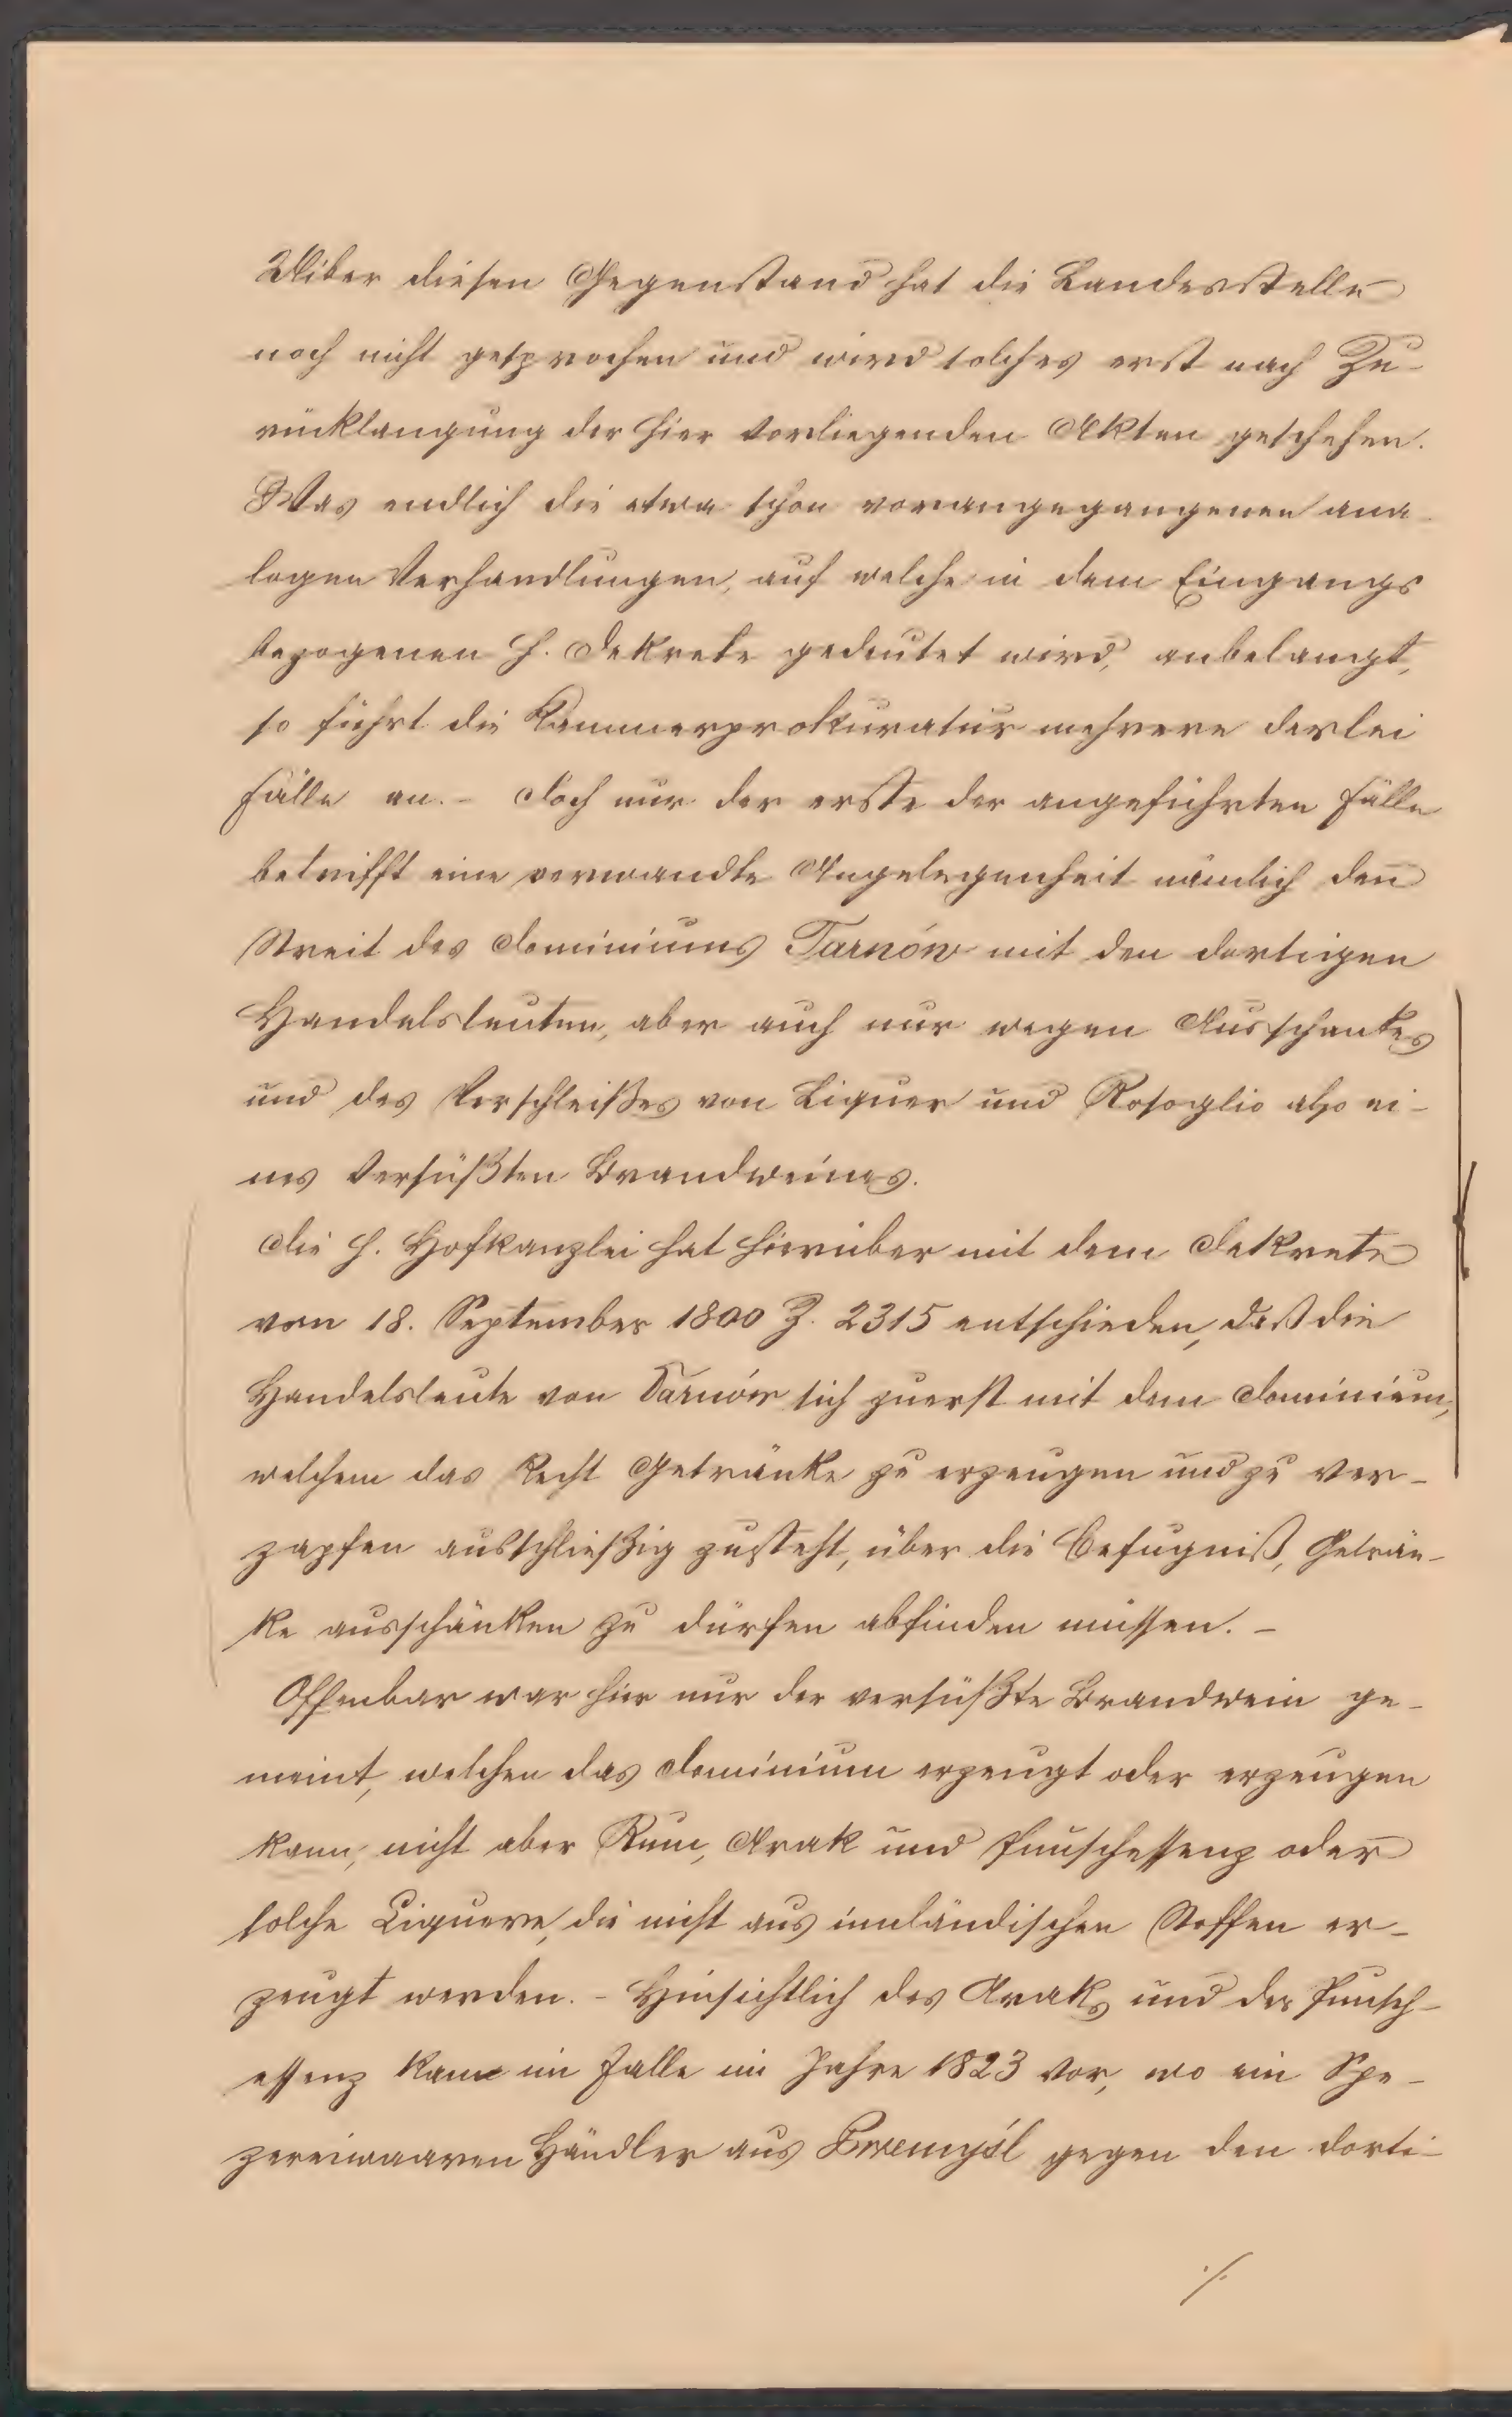 Uiber diesen Gegenstand hat die Landesstelle
noch nicht gesprochen und wird solches erst nach Zu-
rücklangung der hier vorliegenden Akten geschehen.
Was endlich die etwa schon vorangegangenen ana-
logen Verhandlungen, auf welche in dem Eingangs
bezogenen h. Dekrete gedeutet wird, anbelangt,
so führt die Kammerprokuratur mehrere derlei
Fälle an. - Doch nur der erste der angeführten Fälle
betrifft eine verwandte Angelegenheit nämlich den
Streit des Dominiums Tarnów mit den dortigen
Handelsleuten, aber auch nur wegen Ausschankes
und des Verschleißes von Liquer und Rosoglio also ei-
nes versüßten Brandweines.
Die h. Hofkanzlei hat hierüber mit dem Dekrete
vom 18. September 1800 Z. 2315 entschieden, daß die
Handelsleute von Tarnów sich zuerst mit dem Dominium,
welchem das Recht Getränke zu erzeugen und zu ver-
zapfen ausschließig zusteht, über die Befugniß, Geträn-
ke ausschänken zu dürfen abfinden müssen. -
Offenbar war hier nur der versüßte Brandwein ge-
meint, welchen das Dominium erzeugt oder erzeugen
kann, nicht aber Rum, Arak und Punschessenz oder
solche Liquere, die nicht aus innländischen Stoffen er-
zeugt werden. - Hinsichtlich des Araks und der Punsch-
essenz kam im Falle im Jahre 1823 vor, wo ein Spe-
zereiwaaren Händler aus Przemyśl gegen den dorti-
./.